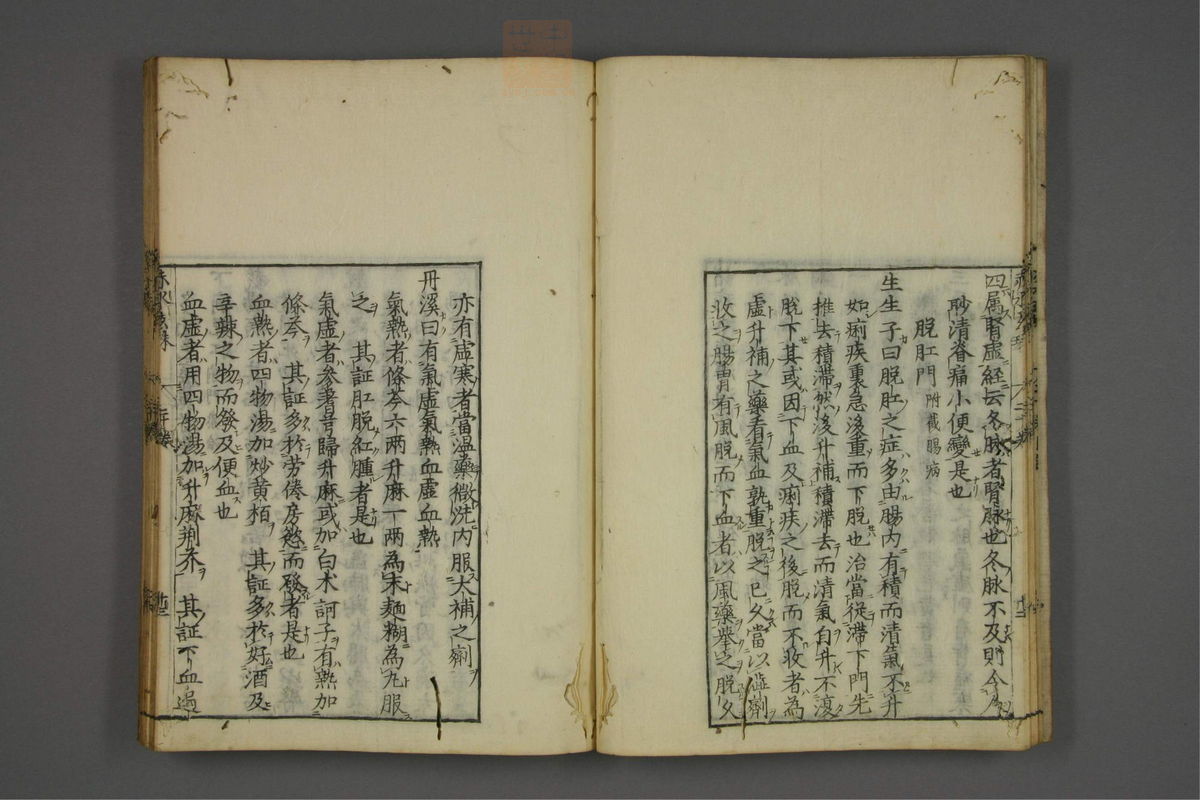 四属腎虚経云冬脉者腎脉也冬脉不及則令
䏚清脊痛小便變是也
脱肛門 附截腸病
生生子曰脱肛之症多由腸内有積而清氣不升
如痢疾裏急後重而下脱也治當從滯下門先
推去積滯然後升補積滯去而清氣自升不復
脱下其或因下血及痢疾之後脱而不收者為
虚升補之藥看氣血孰重脱之已久當以澁劑
收之腸胃有風脱而下血者以風藥擧之脱久
亦有虚寒者當温藥微洗内服大補之劑
丹溪曰有氣虚氣熱血虚血熱
氣熱者條芩六兩升麻一兩為末麵糊為丸服
之 其証肛脱紅腫者是也
氣虚者參蓍芎歸升麻或加白术訶子有熱加
條芩 其証多於勞倦房慾而發者是也
血熱者四物湯加炒黄栢 其証多於好酒及
辛辣之物而發及便血也
血虚者用四物湯加升麻荆芥 其証下血過